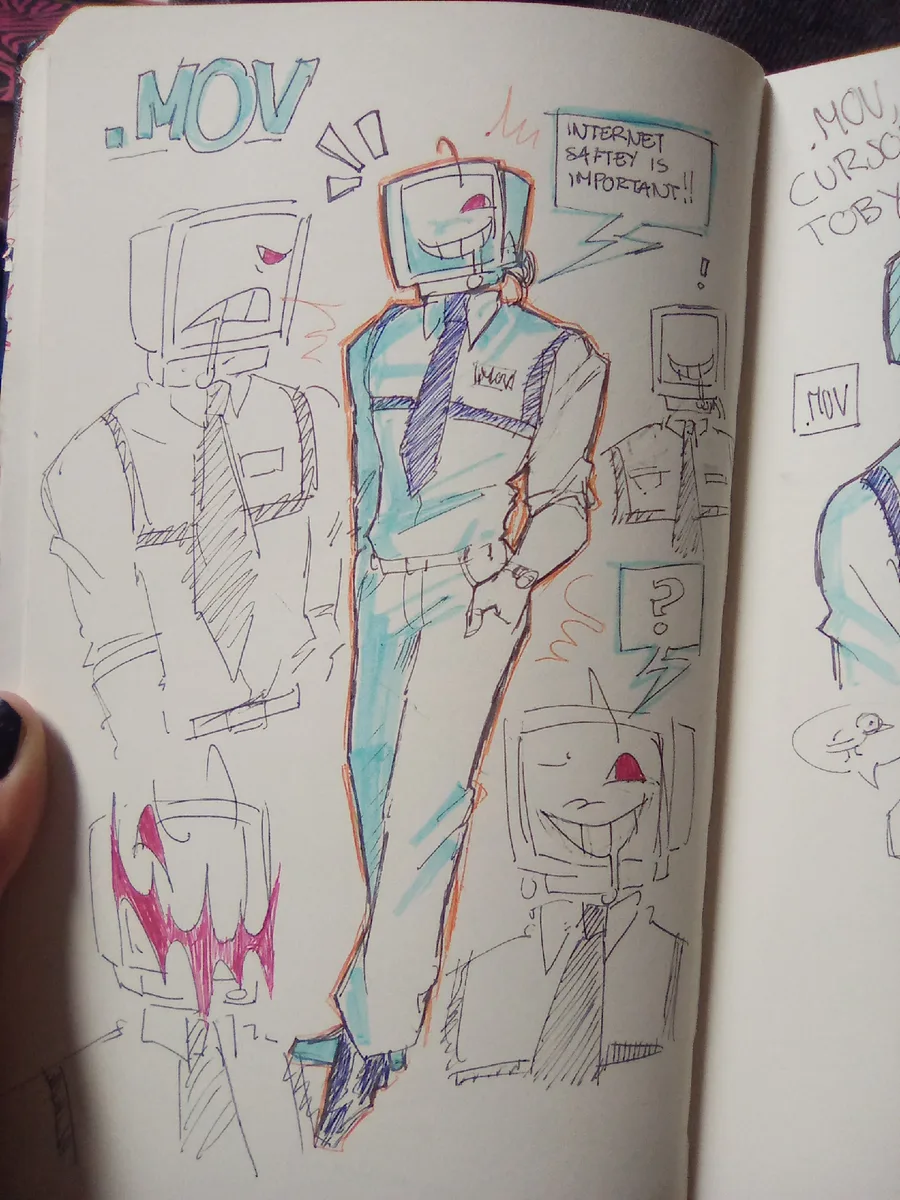 .MOV
INTERNET
SAFTEY IS
IMPORTANT!!
!
.MOV
?
.MOV,
TOBY
.MOV